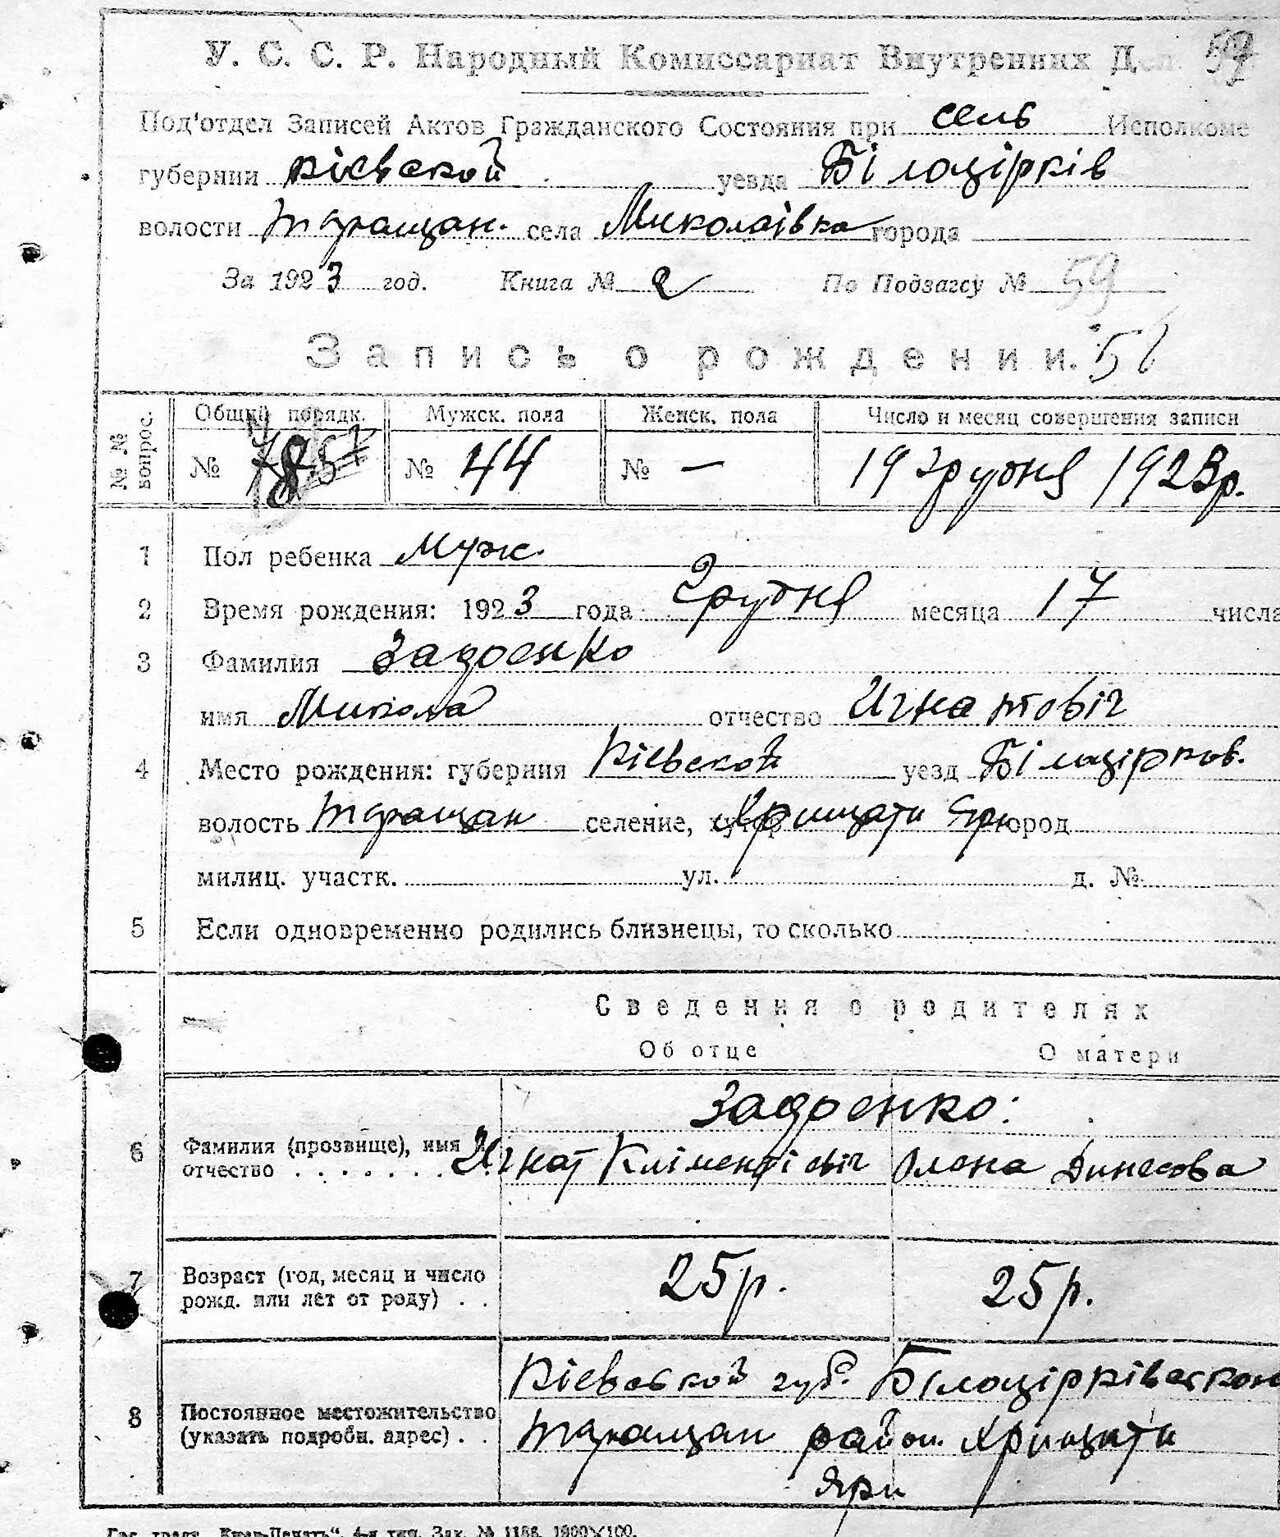 У. С. С. Р. Народный Комиссариат Внутренних Дел 59
Под'отдел Записей Актов Гражданского Состояния при сель Исполкоме
губернии Кіевской уезда Білоцірків
волости Таращан. села Миколаівка города
За 1923 год. Книга № 2 По Подзагсу № 59
Запись о рождении. 56
№ № вопрос. Общий порядк. Мужск. пола Женск. пола Число и месяц совершения записи
№ № 44 № — 19 грудня 1923р.
1 Пол ребенка Муж.
2 Время рождения: 1923 года Грудня месяца 17 числа
3 Фамилия Задоенко
имя Микола отчество Игнатовіч
4 Место рождения: губерния Кіевской уезд Білоцірков.
волость Таращан селение, Хрищати Яри город
милиц. участк. ул. д. №
5 Если одновременно родились близнецы, то сколько
Сведения о родителях
Об отце О матери
Задоенко:
6 Фамилия (прозвище), имя и отчество Игнат Кліментіевіч Олена Динесова
7 Возраст (год, месяц и число рожд. или лет от роду) 25р. 25р.
Кіевской губ. Білоцірківской
8 Постоянное местожительство (указать подробн. адрес) Таращан район. Хрищати
Яри
4-я тип. Зак. № 1186.